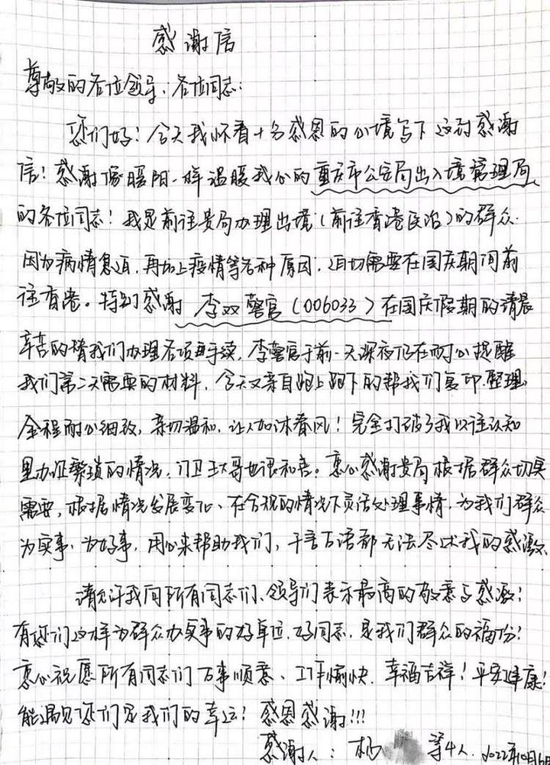 感谢信
尊敬的各位领导、各位同志:
您们好!今天我怀着十分感恩的心境写下这封感谢
信!感谢像暖阳一样温暖我心的重庆市公安局出入境管理局
的各位同志!我是前往贵局办理出境(前往香港医治)的群众.
因为病情急迫,再加上疫情等各种原因,迫切需要在国庆期间前
往香港。特别感谢 李双警官(006033)在国庆假期的清晨
辛苦的替我们办理各项手续,李警官于前一天深夜仍在耐心提醒
我们第二天需要的材料,今天又亲自跑上跑下的帮我们复印、整理,
全程耐心细致,亲切温和,让人如沐春风!完全打破了我以往认知
里办证繁琐的情况,门卫大哥也很和善。衷心感谢贵局根据群众切实
需要,根据情况发展变化、在合规的情况下灵活处理事情,为我们群众
办实事、办好事,用心来帮助我们,千言万语都无法尽述我的感激.
请允许我向所有同志们、领导们表示最高的敬意与感激!
有您们这样为群众办实事的好单位、好同志,是我们群众的福份!
衷心祝愿所有同志们万事顺意、工作愉快、幸福吉祥!平安健康!
能遇见您们是我们的幸运!感恩感谢!!!
感谢人:杨 等4人. 2022年10月6日